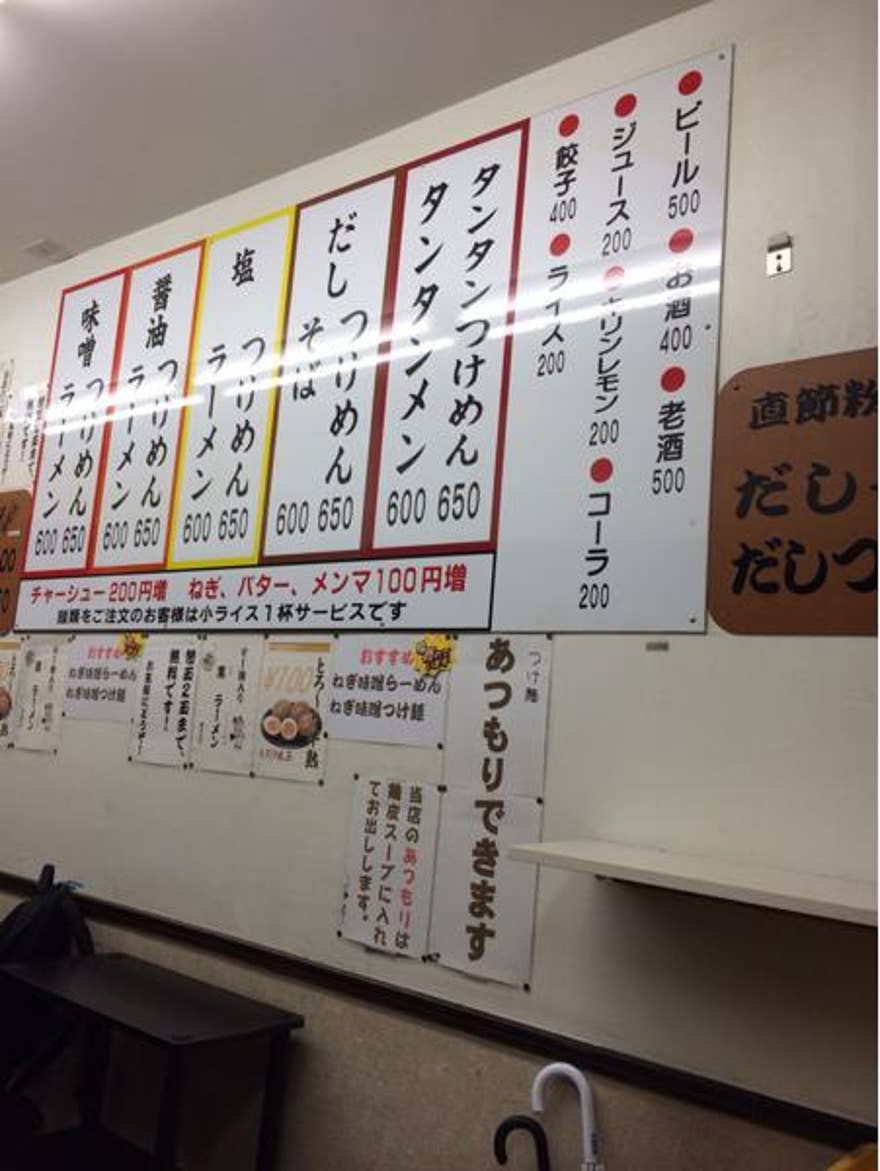 ビール 500
お酒 400
老酒 500
ジュース 200
キリンレモン 200
コーラ 200
餃子 400
ライス 200
タンタンつけめん 650
タンタンメン 600
だし つけめん 650
そば 600
塩 つけめん 650
ラーメン 600
醤油 つけめん 650
ラーメン 600
味噌 つけめん 650
ラーメン 600
チャーシュー200円増 ねぎ、バター、メンマ100円増
麺類をご注文のお客様は小ライス1杯サービスです
直節粉
だし
だしつ
つけ麺
あつもりできます
当店のあつもりは
麺皮スープに入れ
てお出しします。
おすすめ
ねぎ味噌らーめん
ねぎ味噌つけ麺
とろ〜
半熟
¥100
ラーメン
替玉2玉まで、
無料です!
おすすめ
ねぎ味噌らーめん
ねぎ味噌つけ麺
ラーメン